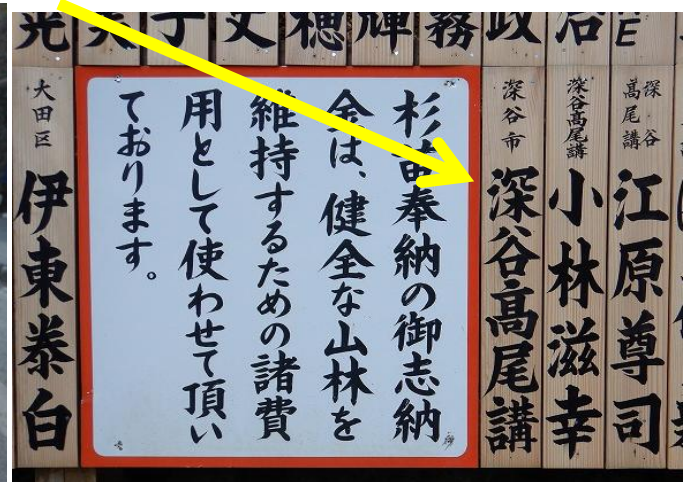 政
務
輝
穂
子
光
深谷
高尾講
江原尊司
深谷高尾講
小林滋幸
深谷市
深谷高尾講
杉苗奉納の御志納
金は、健全な山林を
維持するための諸費
用として使わせて頂い
ております。
大田区
伊東泰白